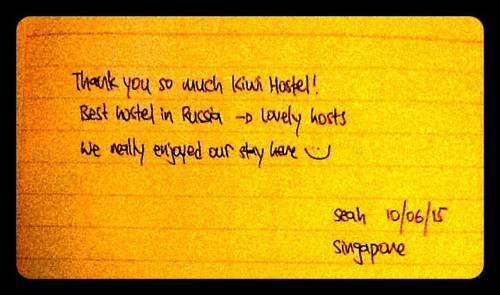 Thank you so much Kiwi Hostel!
Best hostel in Russia → lovely hosts
We really enjoyed our stay here
Seah 10/06/15
Singapore